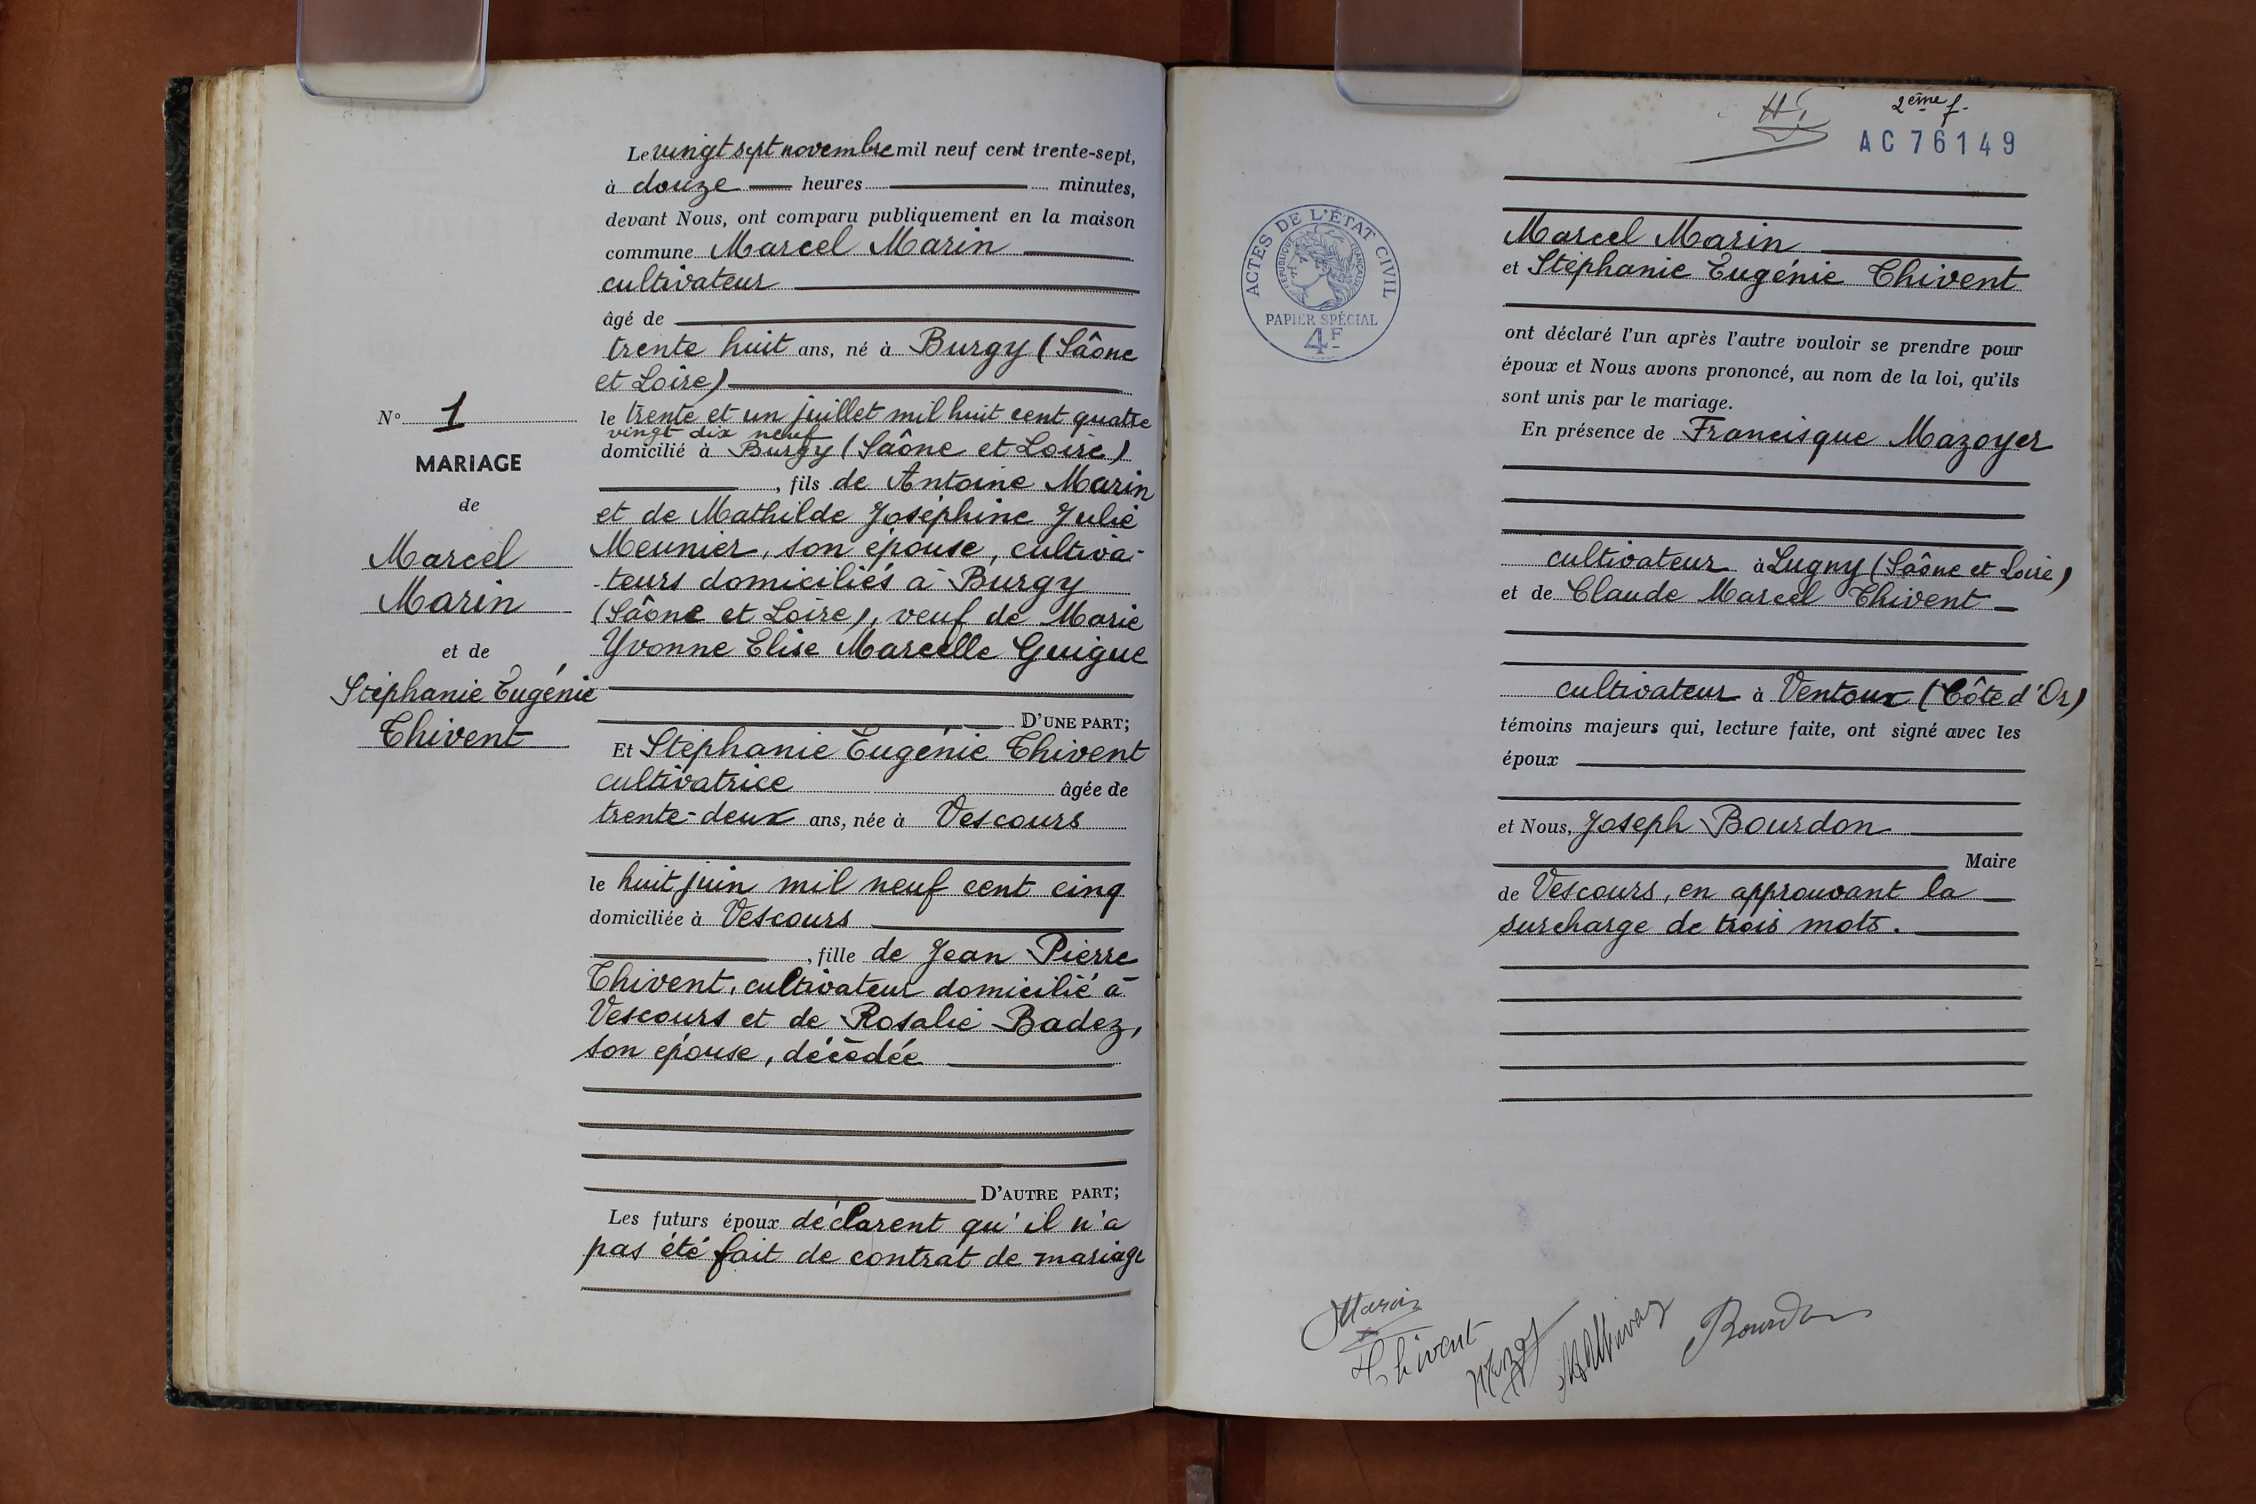 Le vingt sept novembre mil neuf cent trente-sept,
à douze heures minutes,
devant Nous, ont comparu publiquement en la maison
commune Marcel Marin
cultivateur
âgé de
trente huit ans, né à Burgy (Saône
et Loire)
le trente et un juillet mil huit cent quatre
vingt dix neuf
domicilié à Burgy (Saône et Loire)
, fils de Antoine Marin
et de Mathilde Joséphine Julie
Meunier, son épouse, cultiva-
teurs domiciliés à Burgy
(Saône et Loire), veuf de Marie
Yvonne Elise Marcelle Guigue
D'UNE PART;
Et Stéphanie Eugénie Thivent
cultivatrice âgée de
trente-deux ans, née à Vescours
le huit juin mil neuf cent cinq
domiciliée à Vescours
, fille de Jean Pierre
Thivent, cultivateur domicilié à
Vescours et de Rosalie Badez,
son épouse, décédée
D'AUTRE PART;
Les futurs époux déclarent qu'il n'a
pas été fait de contrat de mariage
N° 1
MARIAGE
de
Marcel
Marin
et de
Stéphanie Eugénie
Thivent
2ème f.
AC 76149
ACTES DE L'ÉTAT CIVIL
RÉPUBLIQUE FRANÇAISE
PAPIER SPÉCIAL
4F
Marcel Marin
et Stéphanie Eugénie Thivent
ont déclaré l'un après l'autre vouloir se prendre pour
époux et Nous avons prononcé, au nom de la loi, qu'ils
sont unis par le mariage.
En présence de Francisque Mazoyer
cultivateur à Lugny (Saône et Loire)
et de Claude Marcel Thivent
cultivateur à Ventoux (Côte d'Or)
témoins majeurs qui, lecture faite, ont signé avec les
époux
et Nous, Joseph Bourdon
Maire
de Vescours, en approuvant la
surcharge de trois mots.
Marin
Thivent
Bourdon